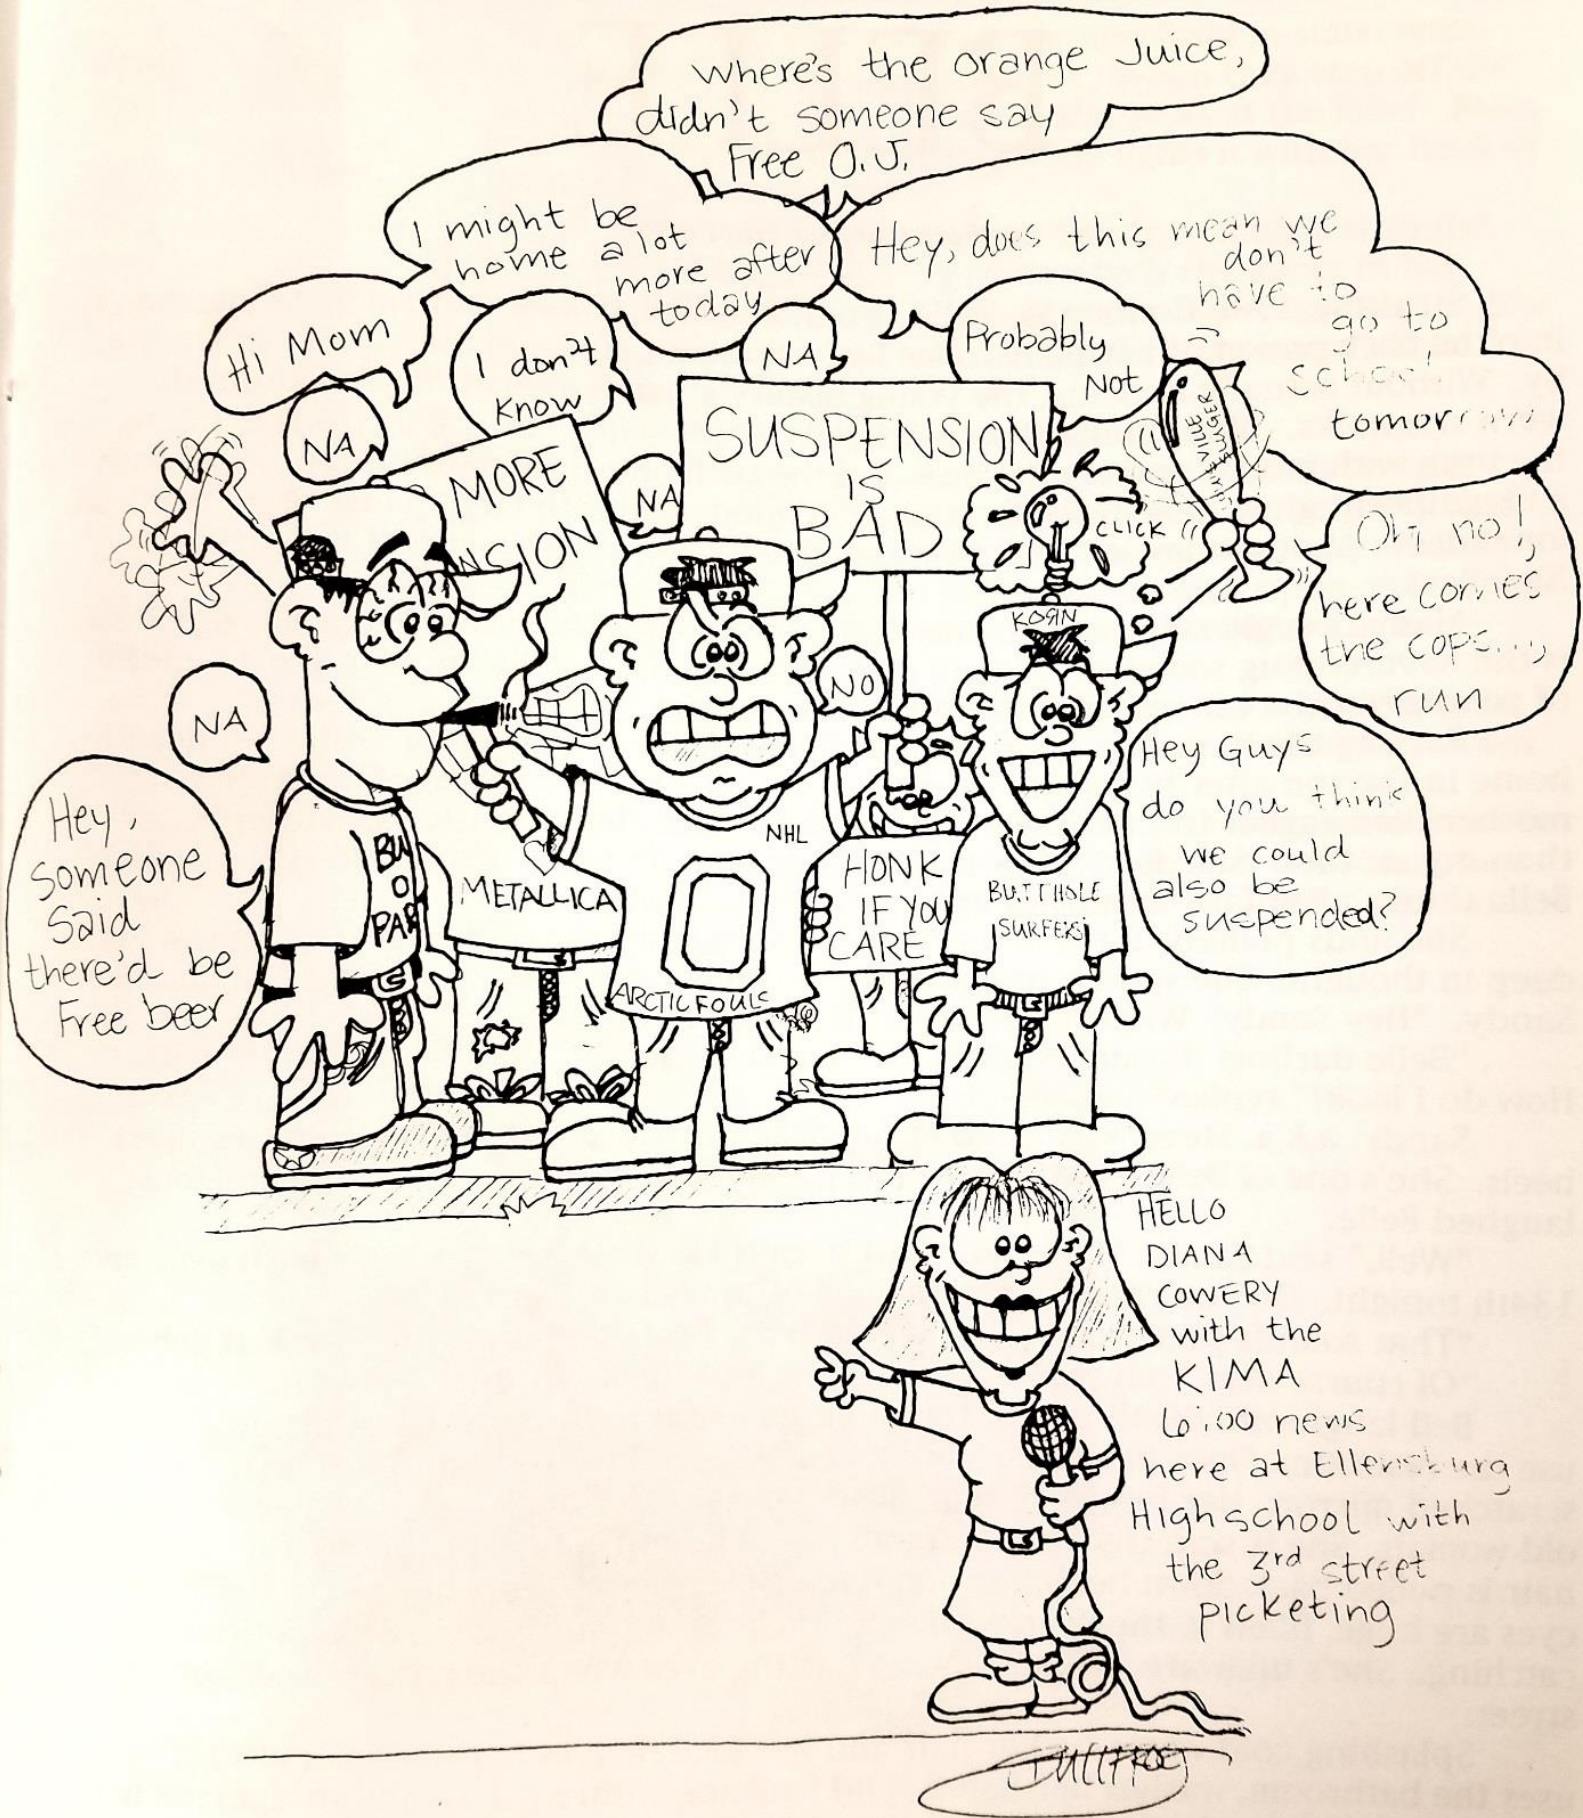 Where's the orange Juice,
didn't someone say
Free O.J.
I might be
home a lot
more after
today
Hey, does this mean we
don't
have to
go to
school
tomorrow
Hi Mom
I don't
know
NA
Probably
Not
NA
NA
MORE
NSION
SUSPENSION
IS
BAD
LOUISVILLE
SLUGER
CLICK
Oh no!,
here comes
the cops...,
run
KORN
NA
NO
Hey Guys
do you think
we could
also be
suspended?
Hey,
someone
said
there'd be
Free beer
BU
O
PAR
METALLICA
NHL
O
ARCTIC FOULS
HONK
IF YOU
CARE
BUTTHOLE
SURFERS
HELLO
DIANA
COWERY
with the
KIMA
6:00 news
here at Ellensburg
High school with
the 3rd street
picketing
BULLFROG